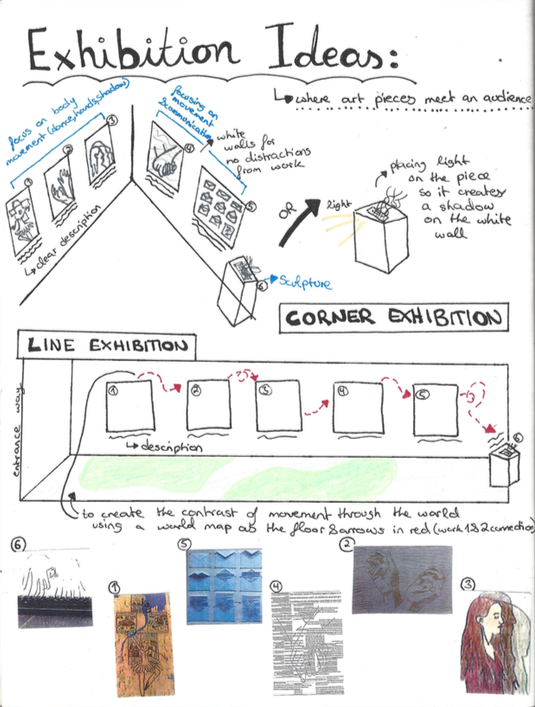 Exhibition Ideas:
↳ where art pieces meet an audience
focus on body
movement (dance, hands, shadow)
focusing on
movement
& communication
→ white
walls for
no distractions
from work
① ② ③ ④ ⑤ ⑥
↳ clear description
OR
light
placing light
on the piece
so it creates
a shadow
on the white
wall
→ Sculpture
CORNER EXHIBITION
LINE EXHIBITION
① ② ③ ④ ⑤ ⑥
entrance way
↳ description
to create the contrast of movement through the world
using a world map as the floor & arrows in red (work 1&2 connection)
⑥ ① ⑤ ④ ② ③